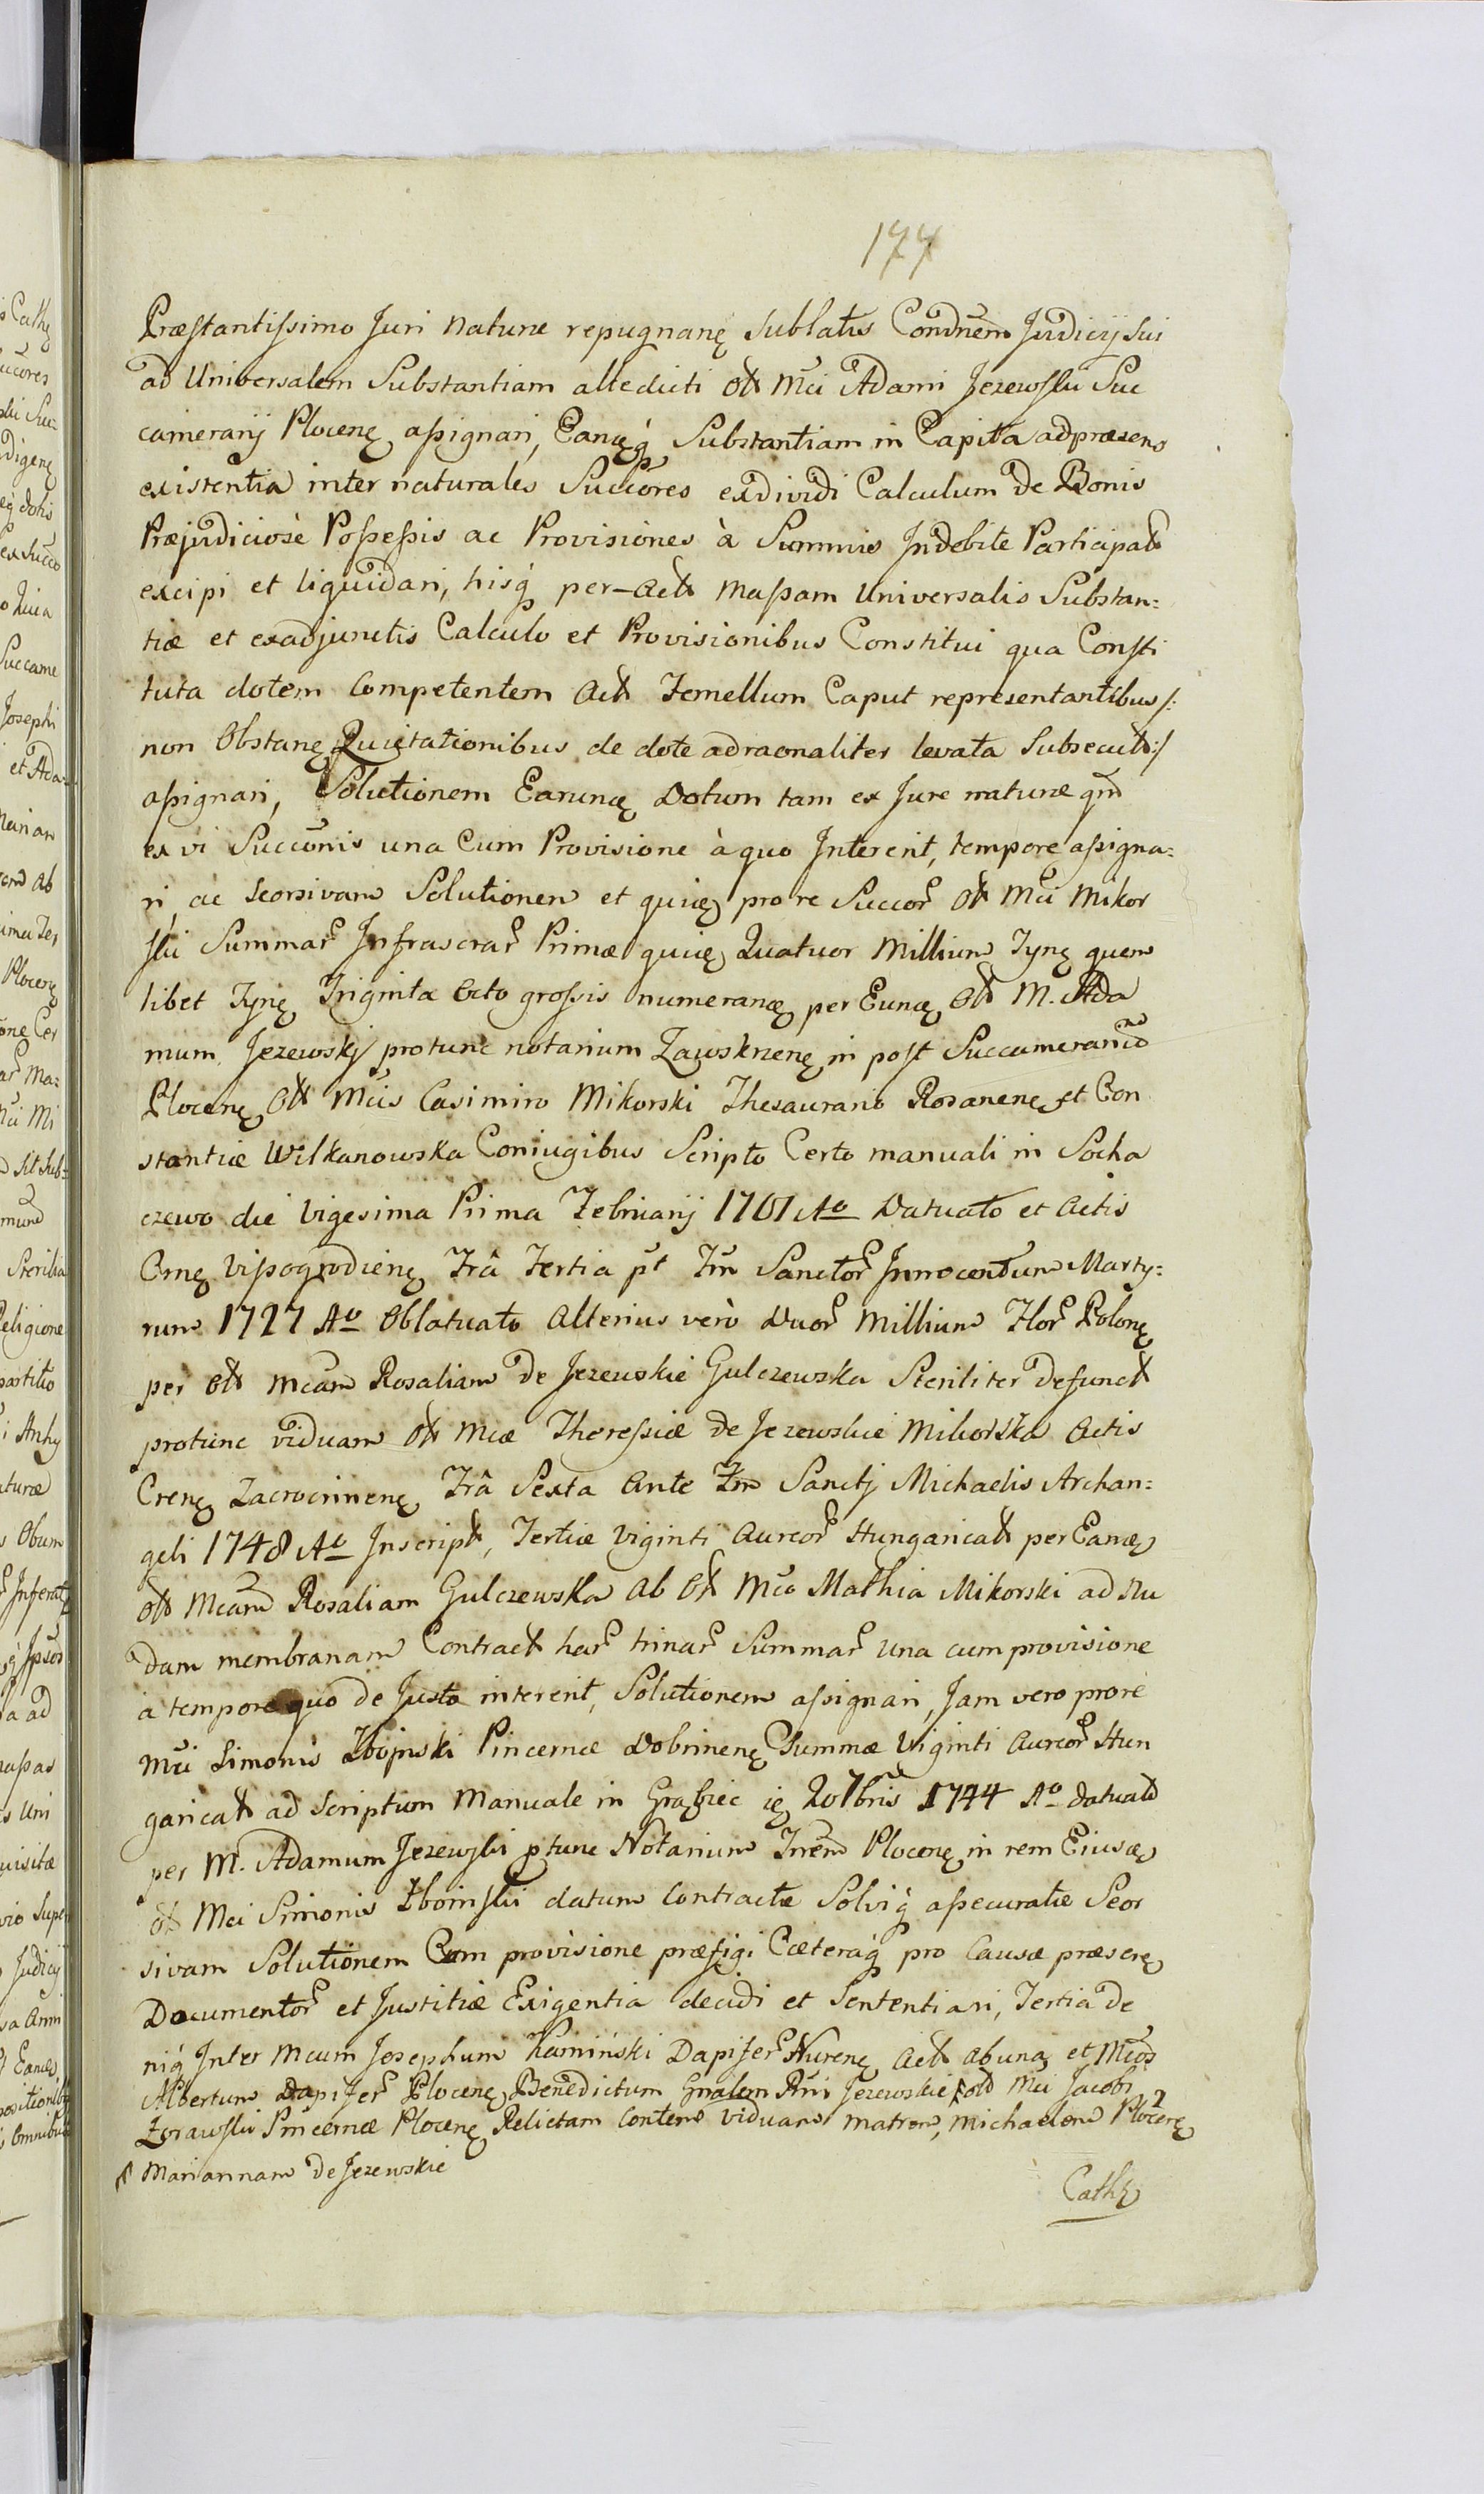 177
Præstantissimo Juri naturæ repugnanę sublatis Condnem Judicij sui
ad Universalem Substantiam altedicti olt Mci Adami Jezewski Suc
camerarij Plocenę assignari, Eanęq́ Substantiam in Capita adpræsens
existentia inter naturales Succores exdividi Calculum de Bonis
Præjudiciosè Possessis ac Provisiones à Summis Indebite Participat
excipi et liquidari, hisq́ per-act Massam Universalis Substan:
tiæ et exadjunctis Calculo et Provisionibus Constitui qua Consti
tuta dotem Competentem act Femellum Caput representantibus /:
non Obstanę Quietationibus de dote adraonaliter levata Subsecut :/
assignari, Solutionem Earunę Dotum tam ex Jure naturæ qm
ex vi Succonis una Cum Provisione à quo Intererit, tempore assigna:
ri ac Seorsivam Solutionem et quię pro re Succor olt Mci Mikor
ski Summar Infrascrar Primæ quię Quatuor Millium Tynę quem
libet Tynę Triginta Octo grossis numeranę per Eunę olt M. Ada
mum Jezewskj protunc notarium Zawskrzenę in post Succamerarium
Plocenę olt Mcis Casimiro Mikorski Thesaurario Rozanenę et Con
stantiæ Wilkanowska Coniugibus Scripto Certo manuali in Socha
czewo die Vigesima Prima Februarij 1701 Ao Datuato et Actis
Crnę Vissogrodienę Frâ Tertia pt Fm Sanctor Innocentum Marty:
rum 1727 Ao Oblatuato Alterius verò Duor Millium Flor Polonę
per olt Mcam Rosaliam de Jezewskie Gulczewska Steriliter defunct
protunc viduam olt Mcæ Theressiæ de Jezewskie Mikorska Actis
Crenę Zacrocimenę Frâ Sexta Ante Fm Sanctj Michaelis Archan:
geli 1748 Ao Inscript, Tertiæ Viginti Aureor Hungaricat per Eanę
olt Mcam Rosaliam Gulczewska ab olt Mco Mathia Mikorski ad Nu
dam membranam Contract har trinar Summar una cum provisione
a tempore quo de Justo intererit, Solutionem assignari, Jam vero prore
Mci Simonis Zboinski Pincernæ Dobrinenę Summæ Viginti Aureor Hun
garicat ad Scriptum Manuale in ię 20 7bris 1744 Ao datuat
per M. Adamum Jezewski ptunc Notarium Trem Plocenę in rem Eiusę
olt Mci Simonis Zboinski datum Contractæ Solviq́ assecuratæ Seor
sivam Solutionem Cum provisione præfigi Cæteraq́ pro Causæ præsenę
Documentor et Justitiæ Exigentia decidi et Sententiari, Tertia de
niq́ Inter Mcum Josephum Kamiński Dapifer Nurenę Act ab una et Mcos
Albertum Dapifer Plocenę Benedictum Jezewskie olt Mci Jacobi
Zorawski Pincernæ Plocenę Relictam Contem Viduam matrem, Michaelem Plocenę
Mariannam de Jezewskie
Cathę